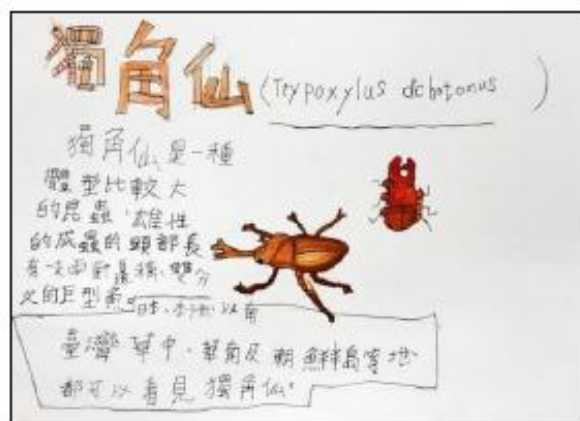 獨角仙(Trypoxylus dichotomus )
獨角仙是一種
體型比較大
的昆蟲,雄性
的成蟲的頭部長
有一支面對
的巨型
日本、
臺灣、華中、華南及朝鮮半島等地
都可以看見獨角仙。